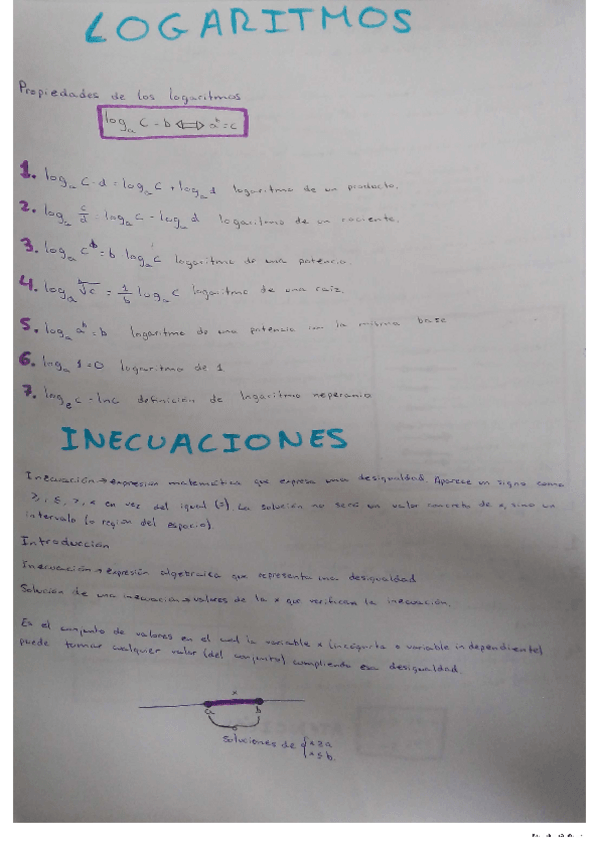 LOGARITMOS
Propiedades de los logaritmos
logₐ c = b ⟺ aᵇ = c
1. logₐ c·d = logₐ c + logₐ d logaritmo de un producto.
2. logₐ c/d = logₐ c - logₐ d logaritmo de un cociente.
3. logₐ cᵇ = b logₐ c logaritmo de una potencia.
4. logₐ ᵇ√c = 1/b logₐ c logaritmo de una raíz.
5. logₐ aᵇ = b logaritmo de una potencia con la misma base
6. logₐ 1 = 0 logaritmo de 1
7. logₑ c = lnc definición de logaritmo neperiano
INECUACIONES
Inecuación → expresión matemática que expresa una desigualdad. Aparece un signo como
≥, ≤, >, < en vez del igual (=). La solución no será un valor concreto de x, sino un
intervalo (o región del espacio).
Introducción
Inecuación → expresión algebraica que representa una desigualdad
Solución de una inecuación → valores de la x que verifican la inecuación.
Es el conjunto de valores en el cual la variable x (incógnita o variable independiente)
puede tomar cualquier valor (del conjunto) cumpliendo esa desigualdad.
x
a b
soluciones de { x ≥ a
x ≤ b.